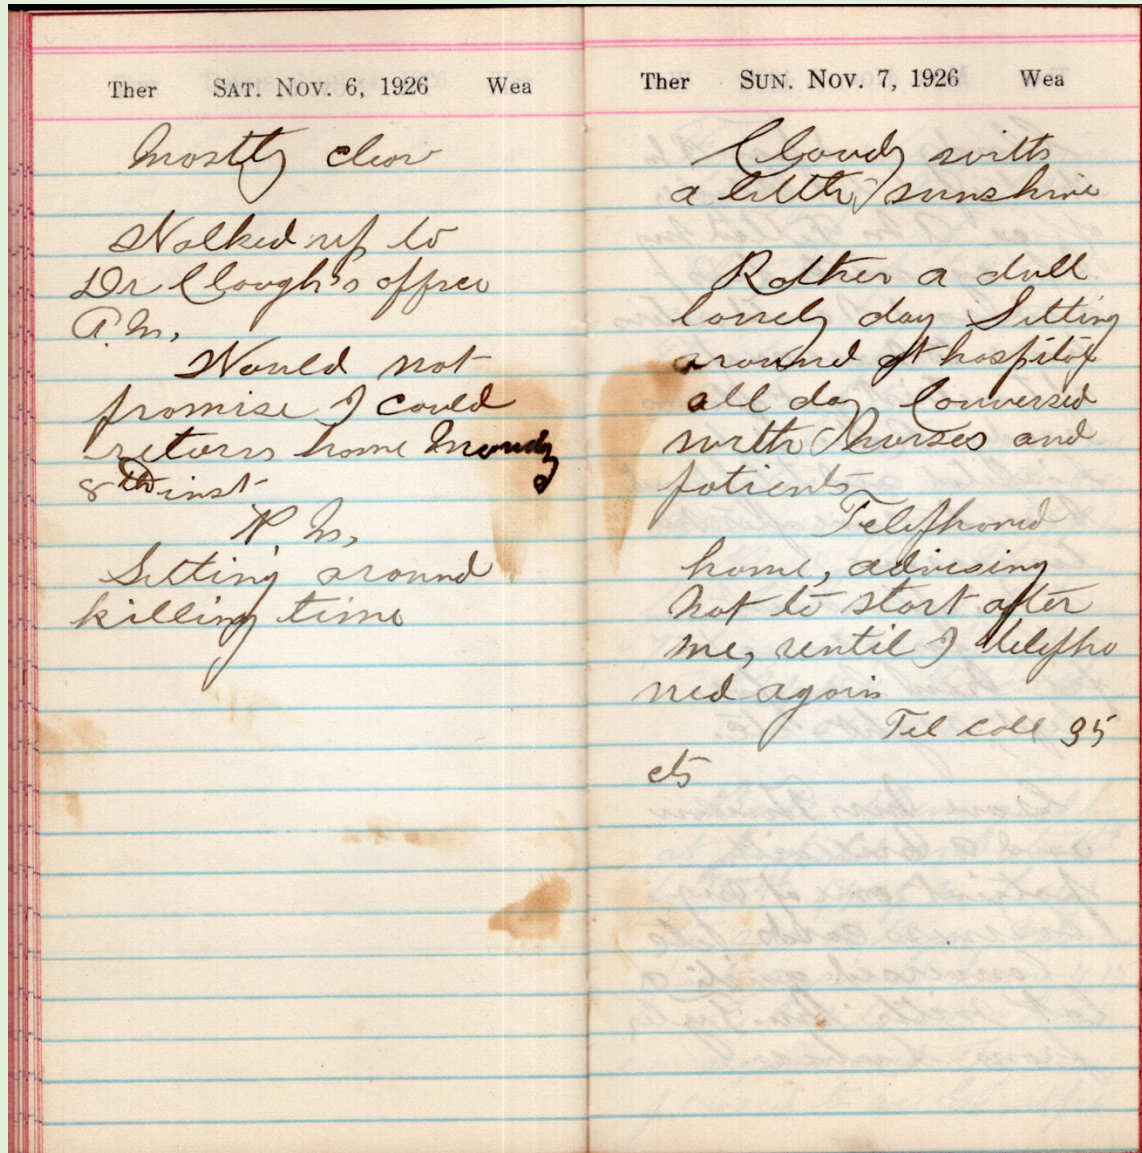 Ther SAT. NOV. 6, 1926 Wea
Mostly clear
Walked up to
Dr Clough's office
A.M.
Would not
promise I could
return home Monday
8th inst
P.M.
Sitting around
killing time
Ther SUN. NOV. 7, 1926 Wea
Cloudy with
a little sunshine
Rather a dull
lonely day Sitting
around at hospital
all day Conversed
with nurses and
patients
Telephoned
home, advising
not to start after
me, until I telepho
ned again
Tel call 35
cts